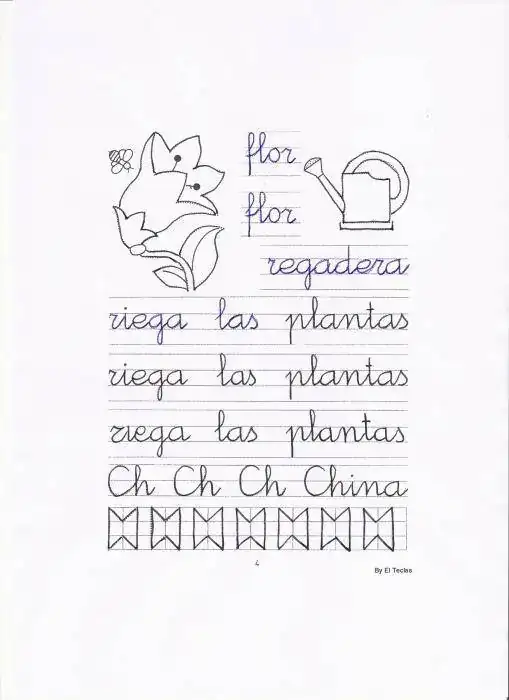 flor
flor
regadera
riega las plantas
riega las plantas
riega las plantas
Ch Ch Ch China
4
By El Teclas